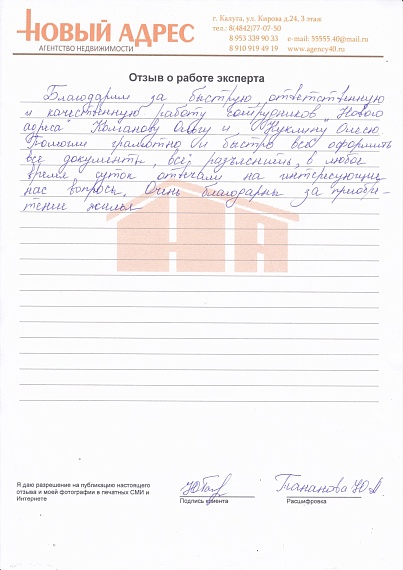 НОВЫЙ АДРЕС
АГЕНТСТВО НЕДВИЖИМОСТИ
г. Калуга, ул. Кирова д.24, 3 этаж
тел.: 8(4842)77-07-50
8 953 339 90 33 e-mail: 55555.40@mail.ru
8 910 919 49 19 www.agency40.ru
Отзыв о работе эксперта
Благодарим за быструю ответственную
и качественную работу сотрудников "Нового
адреса" Колганову Ольгу и Куклину Олесю.
Помогли грамотно и быстро все оформить
все документы, всё разъяснили, в любое
время суток отвечали на интересующие
нас вопросы. Очень благодарны за приобре-
тение жилья
Я даю разрешение на публикацию настоящего
отзыва и моей фотографии в печатных СМИ и
Интернете
Подпись клиента
Тананова Ю.А
Расшифровка